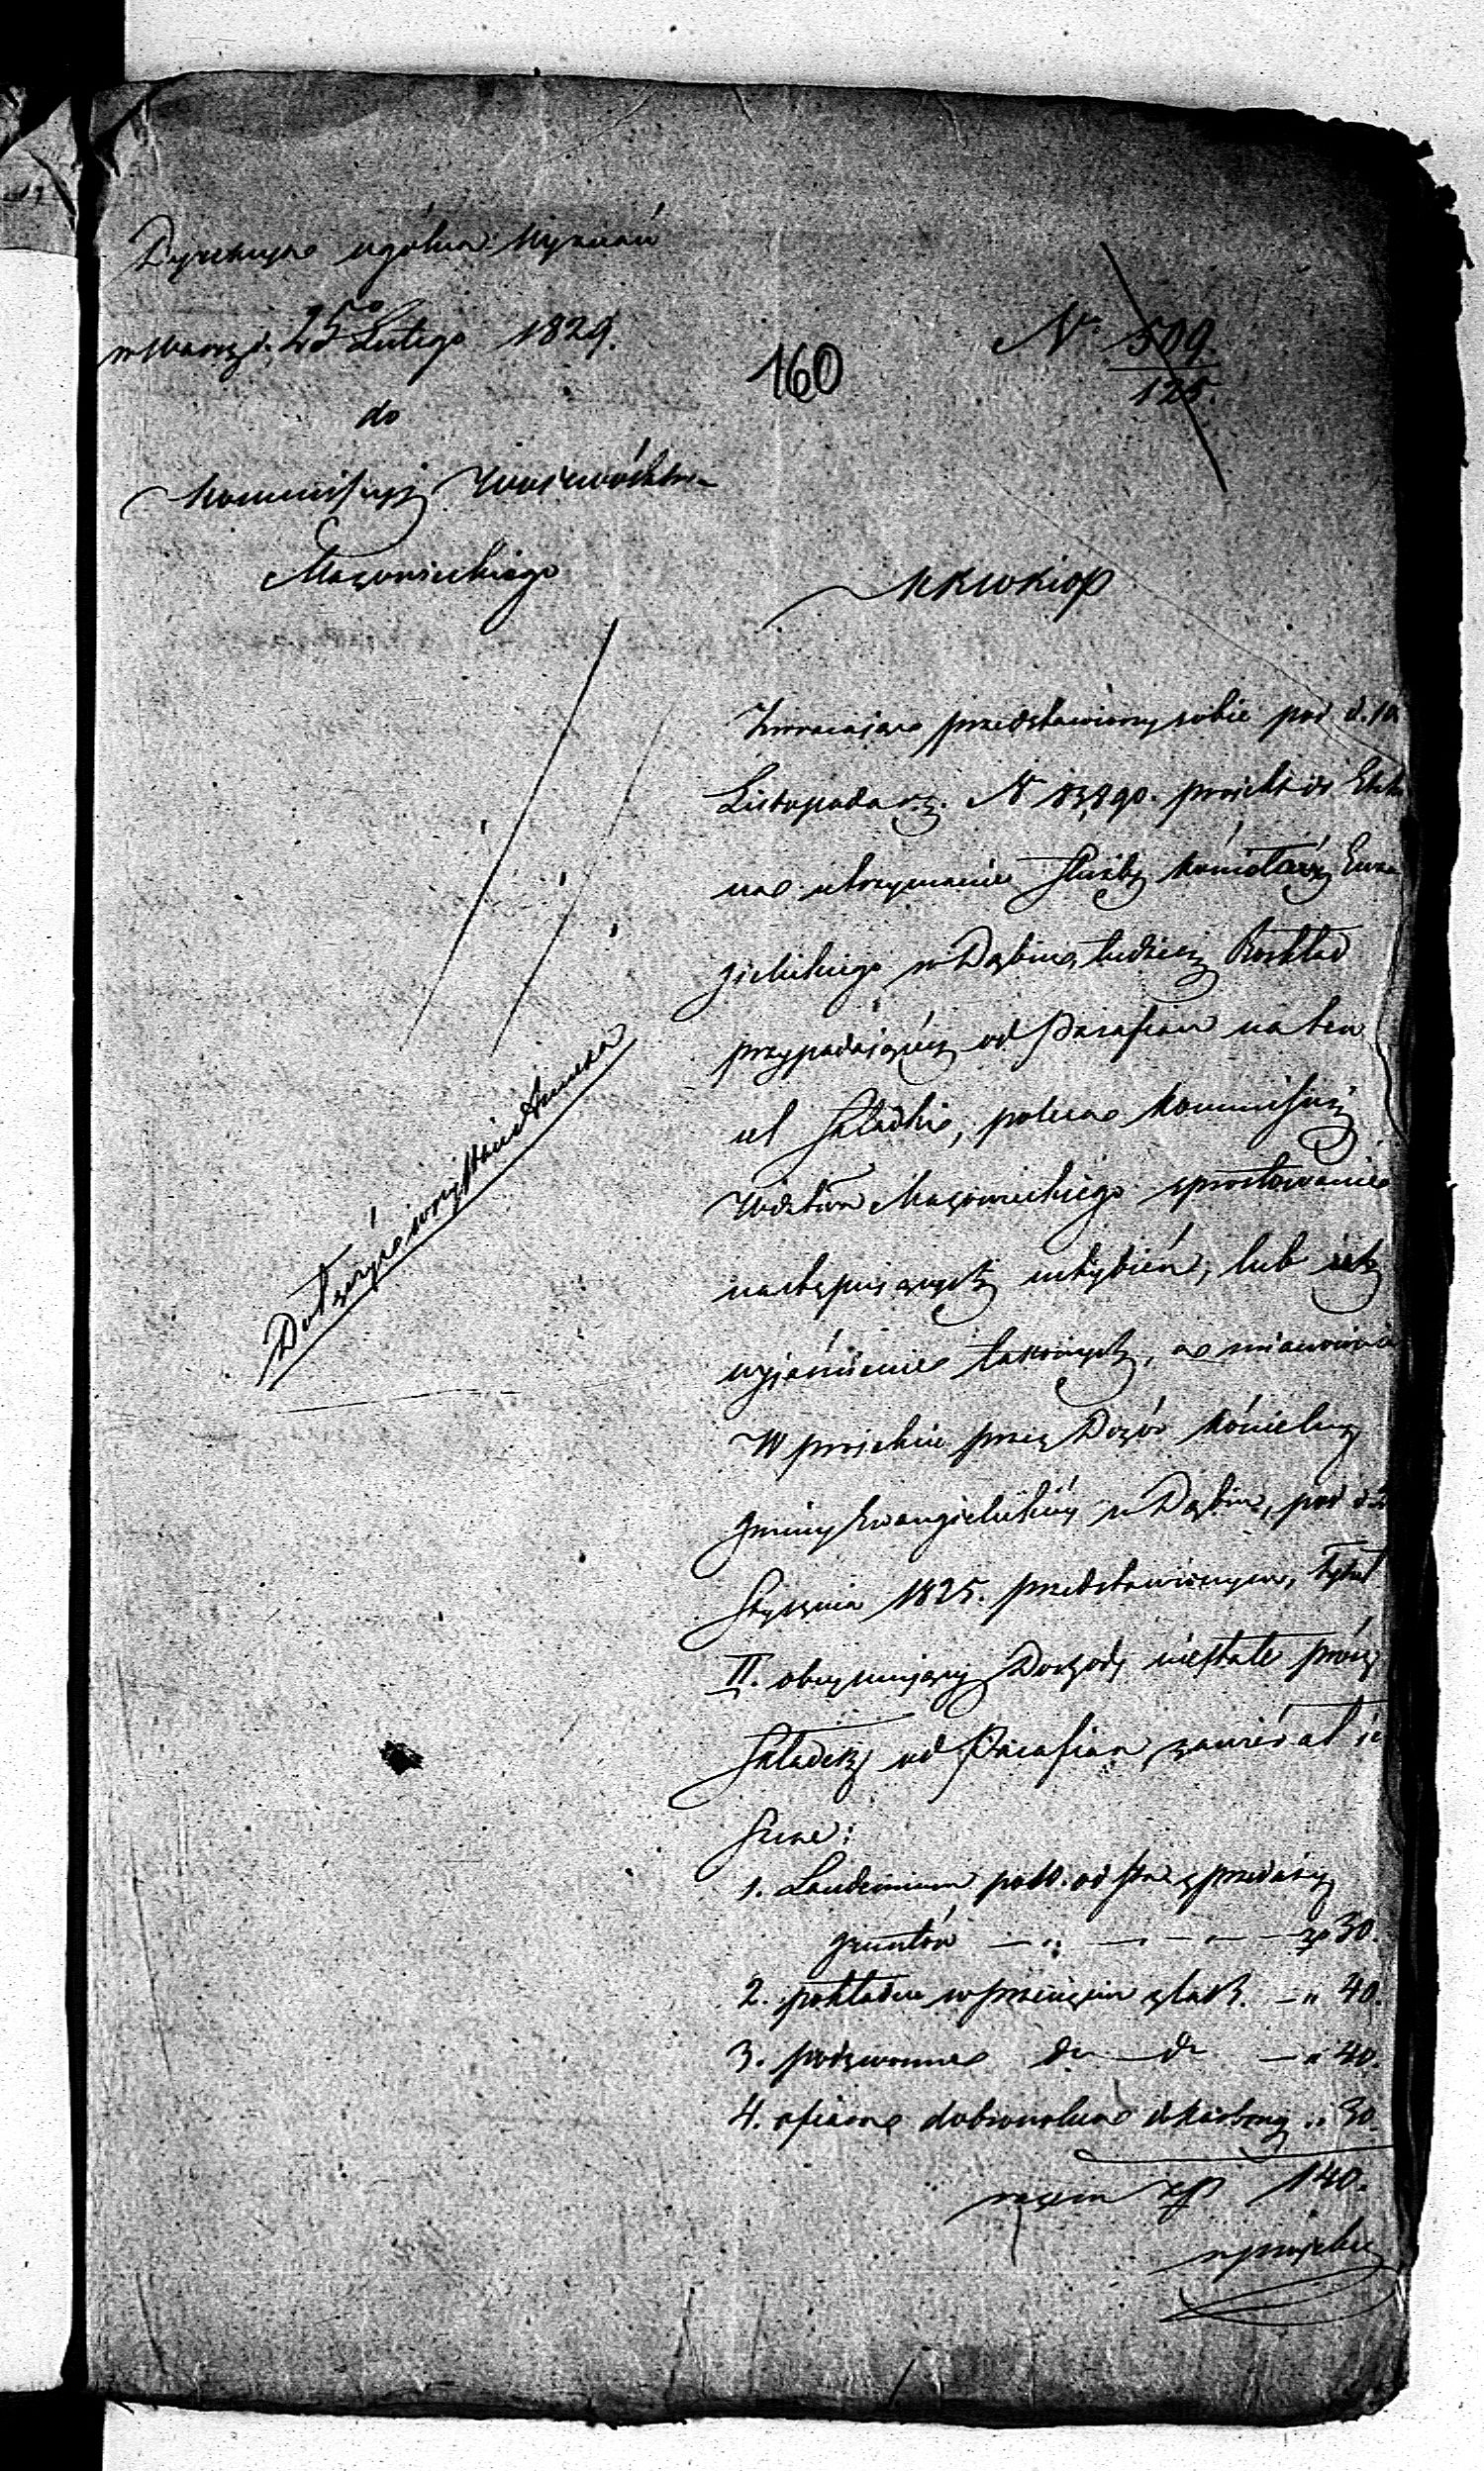 Dyrekcya ogólna Wyznań
w Warsz. d. 25 Lutego 1829.
160
No 509.
125.
do
Kommissyi Wojewódtwa
Mazowieckiego
KRWRiOP
Zwracając przedstawiony sobie pod d. 10
Listopada r. z. N projekt do Etatu
na utrzymanie służby kościelnej Ewan
gielickiego w Dąbiu, tudzież Rozkład
przypadającej od Parafian na ten
cel składki, poleca Kommissyi
Wdztwa Mazowieckiego sprostowanie
następujących uchybień, lub też
wyjaśnienie takowych, a mianowicie
W projekcie przez Dozór kościelny
gminy Ewangielickiej w Dąbiu, pod d.
Stycznia 1825. przedstawionym, Tytuł
II. obejmujący Dochody niestałe prócz
składek od Parafian, zawierał je
szcze:
1. Laudemium od sta z przedaży
gruntów zp 30.
2. pokładne w przecięciu z lat „ 40.
3. podzwonne do do „ 40.
4. ofiara dobrowolna do Karbony „ 30.
razem zp 140.
w projekcie